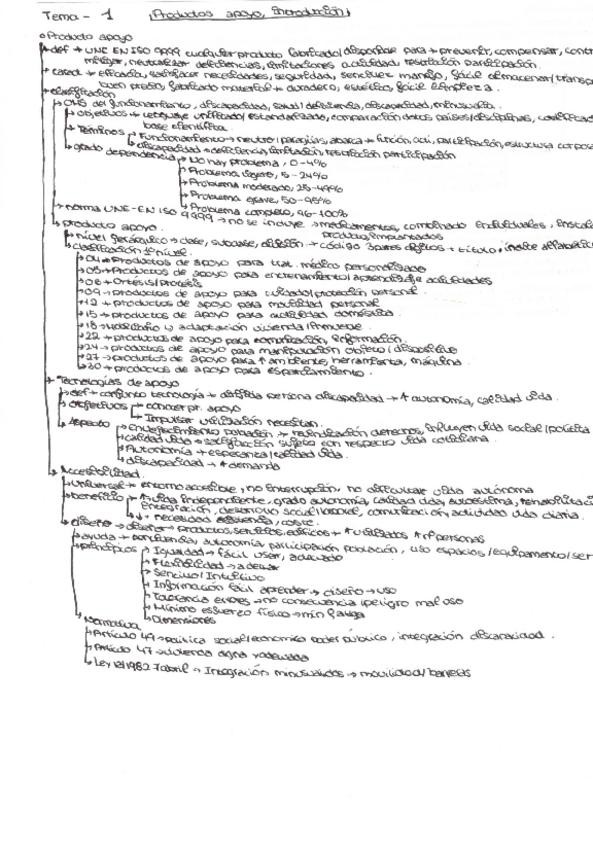 Tema - 1 ¡Productos apoyo, Introducción!
o Producto apoyo
def → UNE EN ISO 9999 cualquier producto fabricado/disponible para → prevenir, compensar, cont
mitigar, neutralizar deficiencias, limitaciones actividad, restricción participación.
caract → eficacia, satisfacer necesidades, seguridad, sencillez manejo, fácil almacenar/transp
buen precio, fabricado material + duradero, estético, fácil limpieza.
clasificación
OMS del funcionamiento, discapacidad, salud/deficiencia, discapacidad, minusvalía.
objetivos → lenguaje unificado/estandarizado, comparación datos países/disciplinas, codificad
base científica
Términos Funcionamiento → neutro/paraguas, abarca → función, acti, participación, estructura corpora
discapacidad → deficiencia, limitación, restricción participación
grado dependencia → No hay problema, 0-4%
Problema ligero, 5-24%
Problema moderado, 25-49%
Problema grave, 50-95%
Problema completo, 96-100%
norma UNE-EN ISO 9999 → no se incluye → medicamentos, combinado individuales, instala
produc, implantados
producto apoyo
nivel jerárquico → clase, subclase, división → código 3 pares dígitos + título, índice alfabético
clasificación 1º nivel
04 → Productos de apoyo para trat. médico personalizado
05 → Productos de apoyo para entrenamiento/aprendizaje actividades
06 → Ortesis/Prótesis
09 → productos de apoyo para cuidado/protección personal
12 → productos de apoyo para movilidad personal
15 → productos de apoyo para actividad doméstica
18 → Mobiliario y adaptación vivienda/inmueble
22 → productos de apoyo para comunicación, información.
24 → productos de apoyo para manipulación objeto/dispositivo
27 → productos de apoyo para ↑ ambiente, herramienta, máquina
30 → productos de apoyo para esparcimiento.
Tecnologías de apoyo
def → conjunto tecnología → dirigida persona discapacidad → ↑ autonomía, calidad vida.
Objetivos → concepr. apoyo
Impulsar utilización necesitan.
Aspecto Envejecimiento población → reivindicación derechos, influyen vida social/política
calidad vida → satisfacción sujeto con respecto vida cotidiana
Autonomía → esperanza/calidad vida.
discapacidad → ↑ demanda
Accesibilidad.
Universal → entorno accesible, no interrupción, no dificultar vida autónoma
beneficio → ↑ vida independiente, grado autonomía, calidad vida, autoestima, rehabilitaci
integración, desarrollo social/laboral, comunicación, actividad vida diaria.
↓ → necesidad asistencia, coste.
diseño → diseñar → productos, servicios, edificios → ↑ utilizados ↑ nº personas
ayuda → convivencia, autonomía, participación población, uso espacios/equipamento/ser
principios Igualdad → fácil usar, adecuado
Flexibilidad → adecuar
Sencillo/Intuitivo
Información fácil aprender → diseño → uso
Tolerancia errores → no consecuencia/peligro mal uso
Mínimo esfuerzo físico → mín fatiga
Dimensiones
Normativa
Artículo 49 → política social/económica poder público, integración discapacidad.
Artículo 47 → vivienda digna y adecuada
Ley 13/1982 7 abril → Integración minusválidos → movilidad/barreras